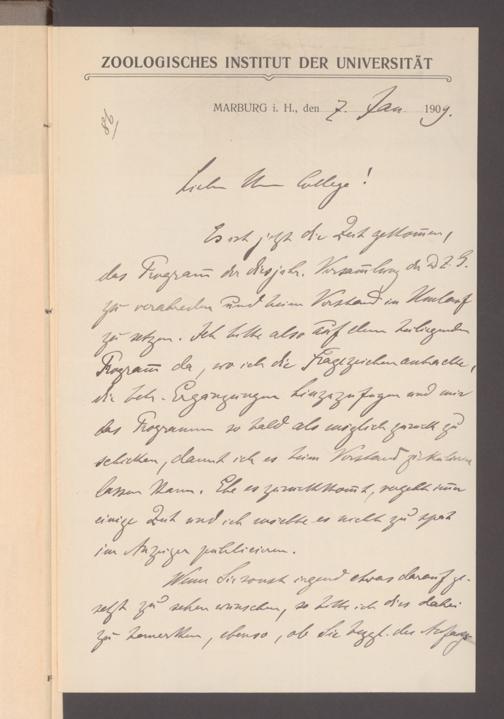 ZOOLOGISCHES INSTITUT DER UNIVERSITÄT
MARBURG i. H., den 7. Jan. 1909.
86/
Lieber Herr College!
Es ist jetzt die Zeit gekommen,
das Programm der diesjähr. Versammlung der D. Z. G.
zu verabreden und beim Vorstand in Umlauf
zu setzen. Ich bitte also auf dem beiliegenden
Programm da, wo ich die Fragezeichen anbrachte,
die betr. Ergänzungen hinzuzufügen und mir
das Programm so bald als möglich zurück zu
schicken, damit ich es beim Vorstand zirkulieren
lassen kann. Ehe es zurückkommt, vergeht immer
einige Zeit und ich möchte es nicht zu spät
im Anzeiger publicieren.
Wenn Sie sonst irgend etwas darauf ge-
setzt zu sehen wünschen, so bitte ich dies dabei
zu bemerken, ebenso, ob Sie bezgl. des